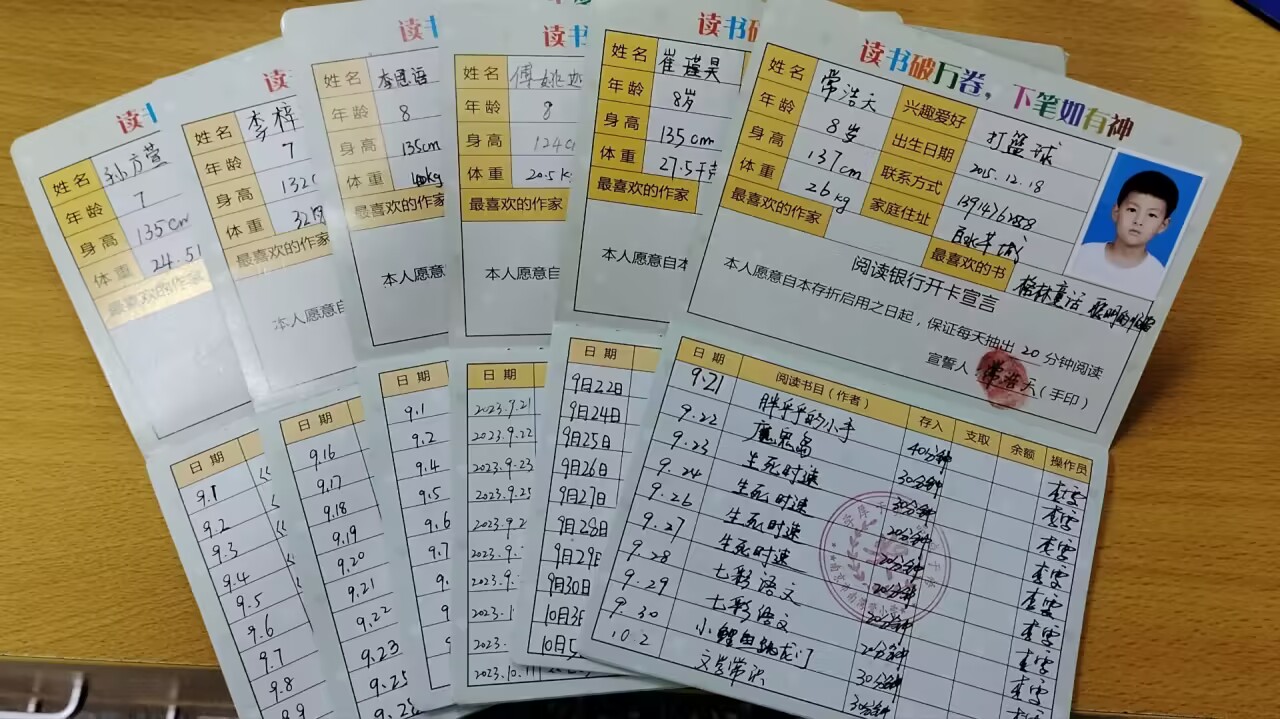 读书
姓名 孙方萱
年龄 7
身高 135cm
体重 24.51
最喜欢的作家
日期
9.1
9.2
9.3
9.4
9.5
9.6
9.7
9.8
9.9
读
姓名 李梓
年龄 7
身高 132
体重 32
最喜欢的作家
本人愿意自
日期
9.16
9.17
9.18
9.19
9.20
9.21
9.22
9.23
9.25
读书
姓名 李思语
年龄 8
身高 135cm
体重 kg
最喜欢的作家
本人愿意
日期
9.1
9.2
9.4
9.5
9.6
9.7
读书
姓名 傅姚
年龄 8
身高 124c
体重 20.5k
最喜欢的作家
本人愿意自
日期
2023.9.21
2023.9.22
2023.9.23
2023.9.25
2023.9.2
2023.9.
2023.9.
2023.1
2023.
2023.10.11
读书破
姓名 崔瑾昊
年龄 8岁
身高 135cm
体重 27.5千
最喜欢的作家
本人愿意自本
日期
9月22日
9月24日
9月25日
9月26日
9月27日
9月28日
9月29日
9月30日
10月3日
10月5
读书破万卷，下笔如有神
姓名 常浩天 兴趣爱好 打篮球
年龄 8岁 出生日期 2015.12.18
身高 137cm 联系方式
体重 26kg 家庭住址
最喜欢的作家 最喜欢的书 格林童话
阅读银行开卡宣言
本人愿意自本存折启用之日起，保证每天抽出 20 分钟阅读
宣誓人 常浩天（手印）
日期 阅读书目（作者） 存入 支取 余额 操作员
9.21 胖乎乎的小手 40分钟 李雪
9.22 魔鬼岛 30分钟 李雪
9.23 生死时速 30分钟 李雪
9.24 生死时速 20分钟 李雪
9.26 生死时速 20分钟 李雪
9.27 生死时速 20分钟 李雪
9.28 七彩语文 20分钟 李雪
9.29 七彩语文 20分钟 李雪
9.30 小鲤鱼跳龙门 30分钟 李雪
10.2 文学常识 30分钟 李雪